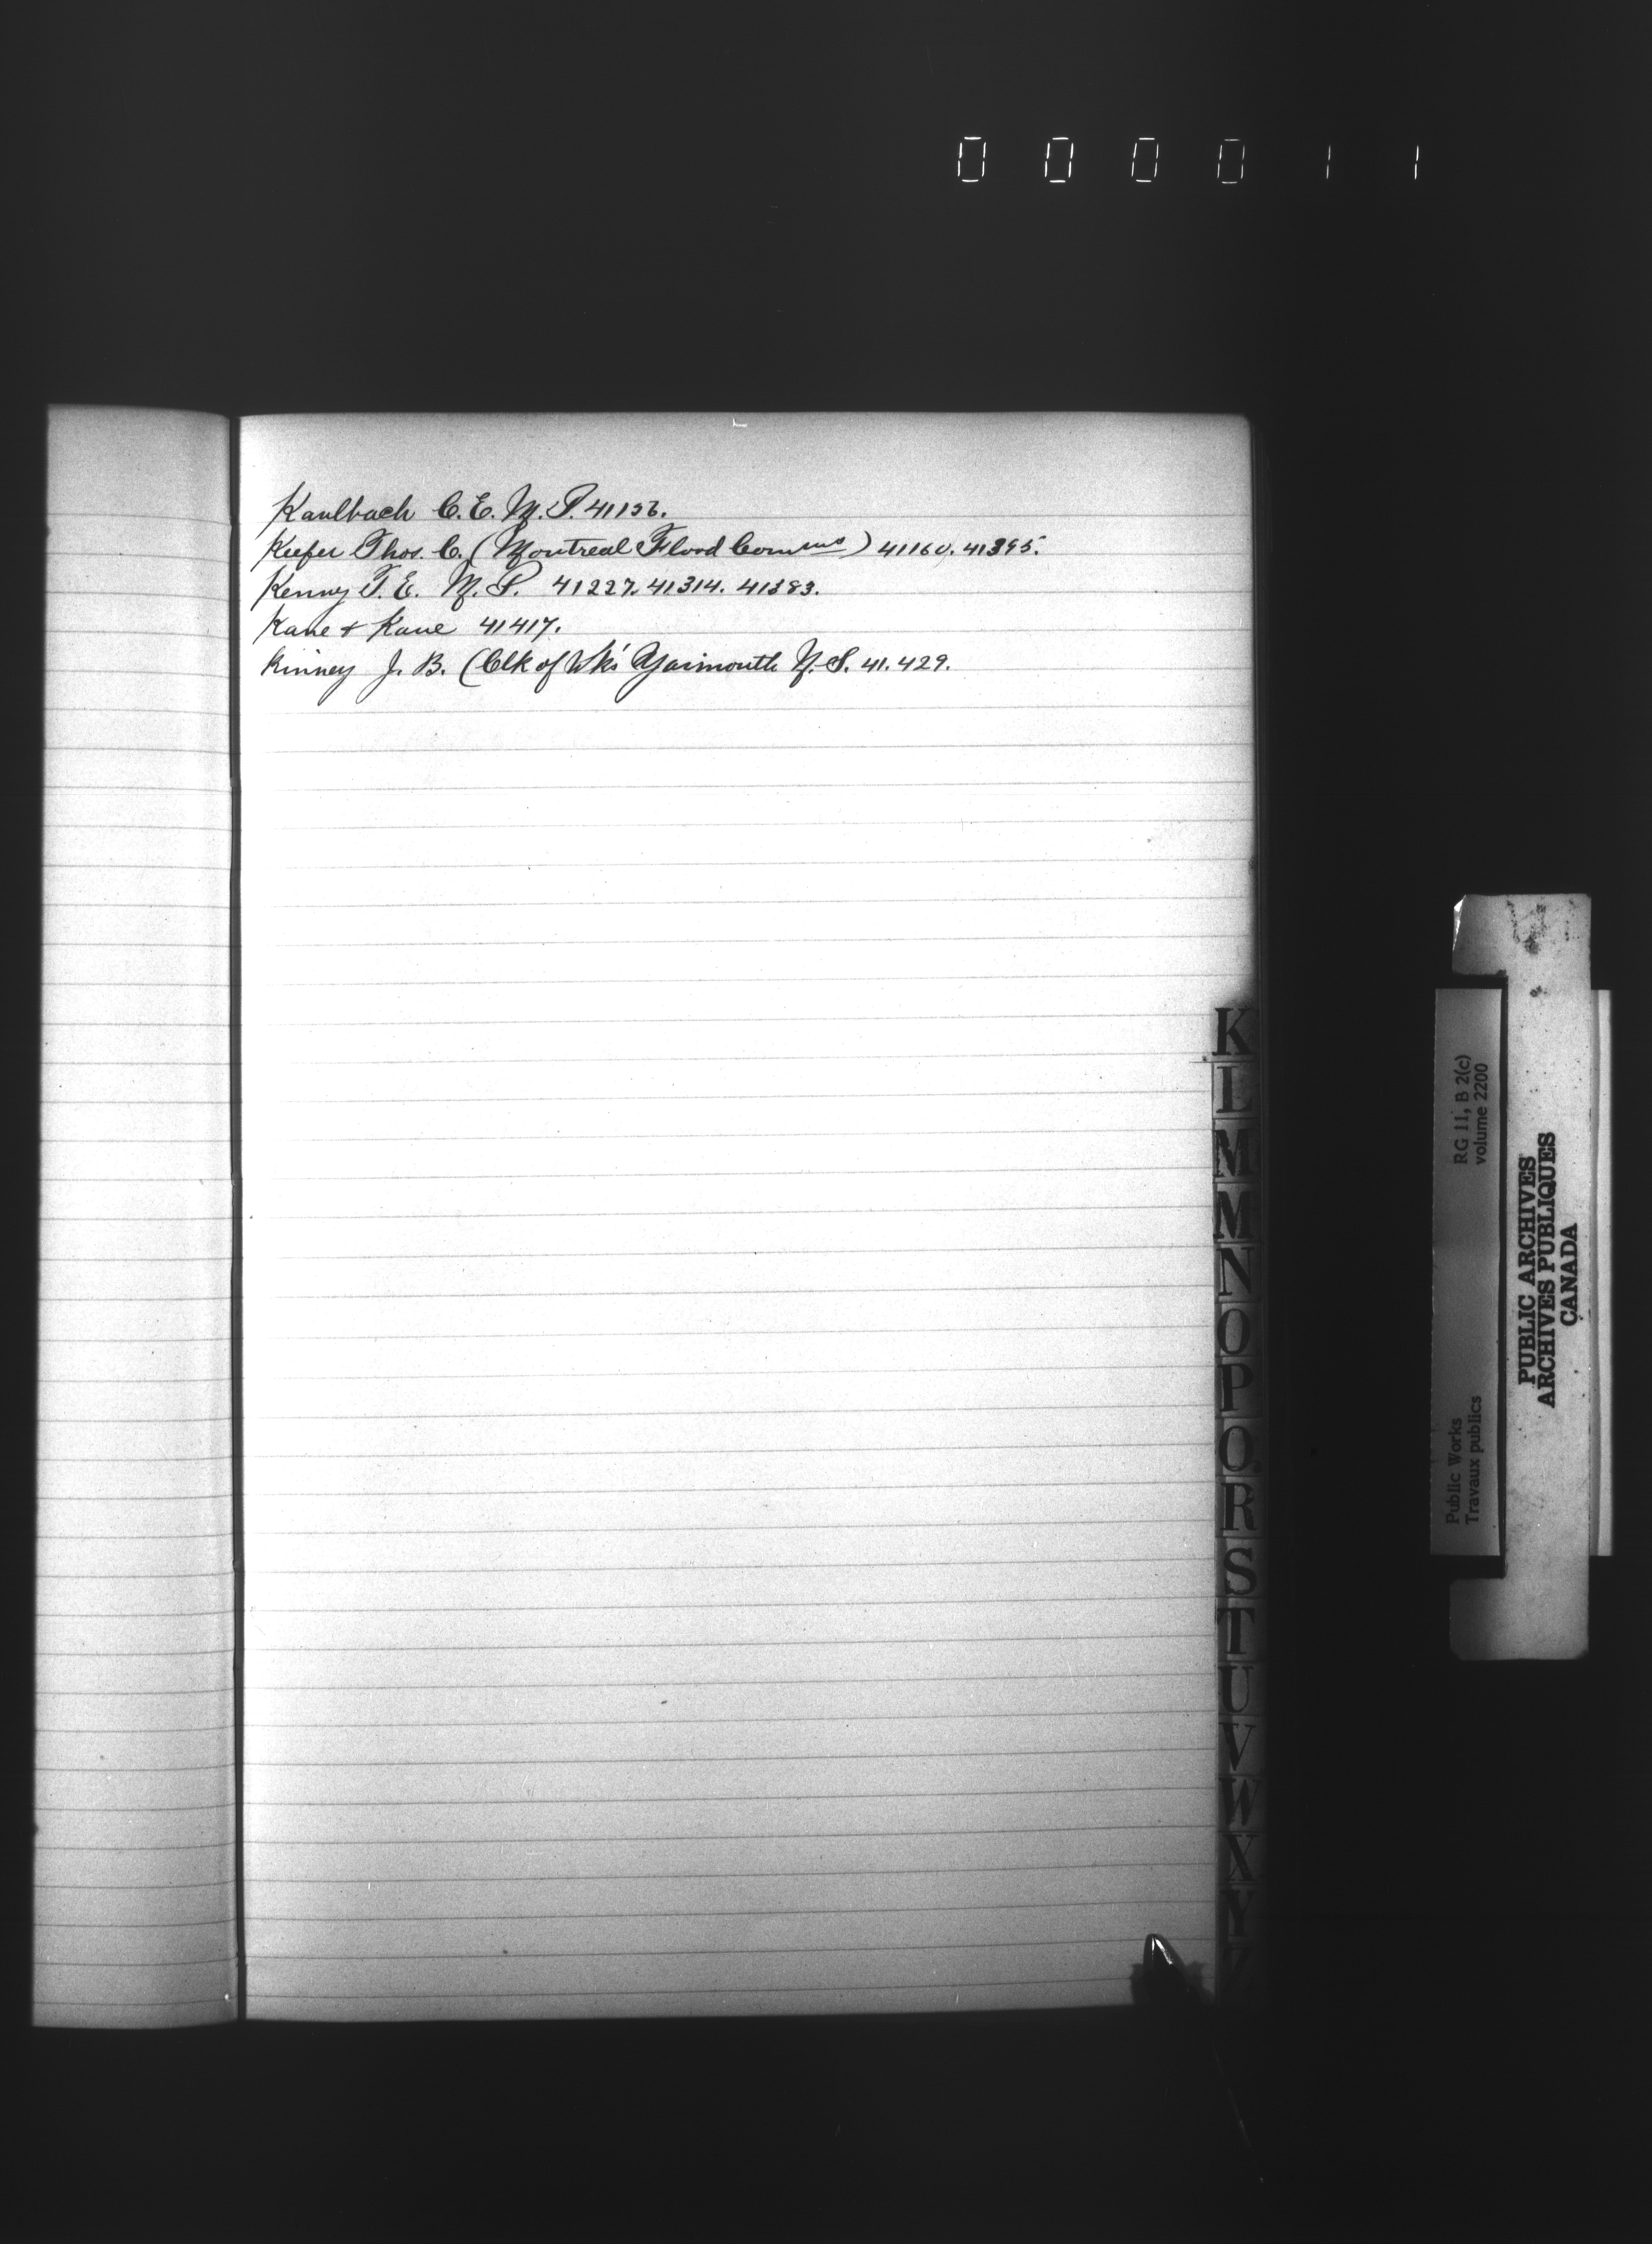 000011
Kaulbach C. E. M. P. 41136.
Keefer Thos. C. (Montreal Flood Comms) 41160. 41395.
Kenny T. E. M. P. 41227. 41314. 41383.
Kane & Kane 41417.
Kinney J. B. (Clk of Wks' Yarmouth N. S. 41. 429.
K
L
M
M
N
O
P
Q
R
S
T
U
V
W
X
Y
Z
Public Works
Travaux publics
RG 11, B 2(c)
volume 2200
PUBLIC ARCHIVES
ARCHIVES PUBLIQUES
CANADA